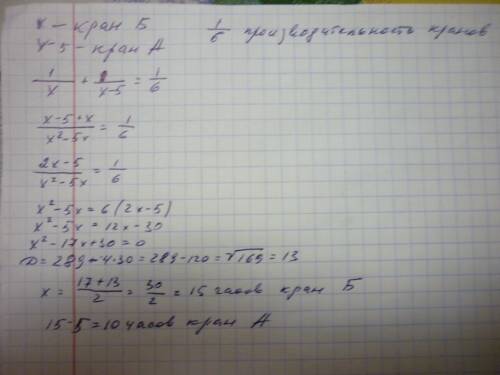 x – кран Б
x-5 – кран А
1/6 производительность кранов
1/x + 1/(x-5) = 1/6
(x-5+x)/(x²-5x) = 1/6
(2x-5)/(x²-5x) = 1/6
x²-5x = 6(2x-5)
x²-5x = 12x-30
x²-17x+30=0
D = 289-4·30 = 289-120 = √169 = 13
x = (17+13)/2 = 30/2 = 15 часов кран Б
15-5=10 часов кран А